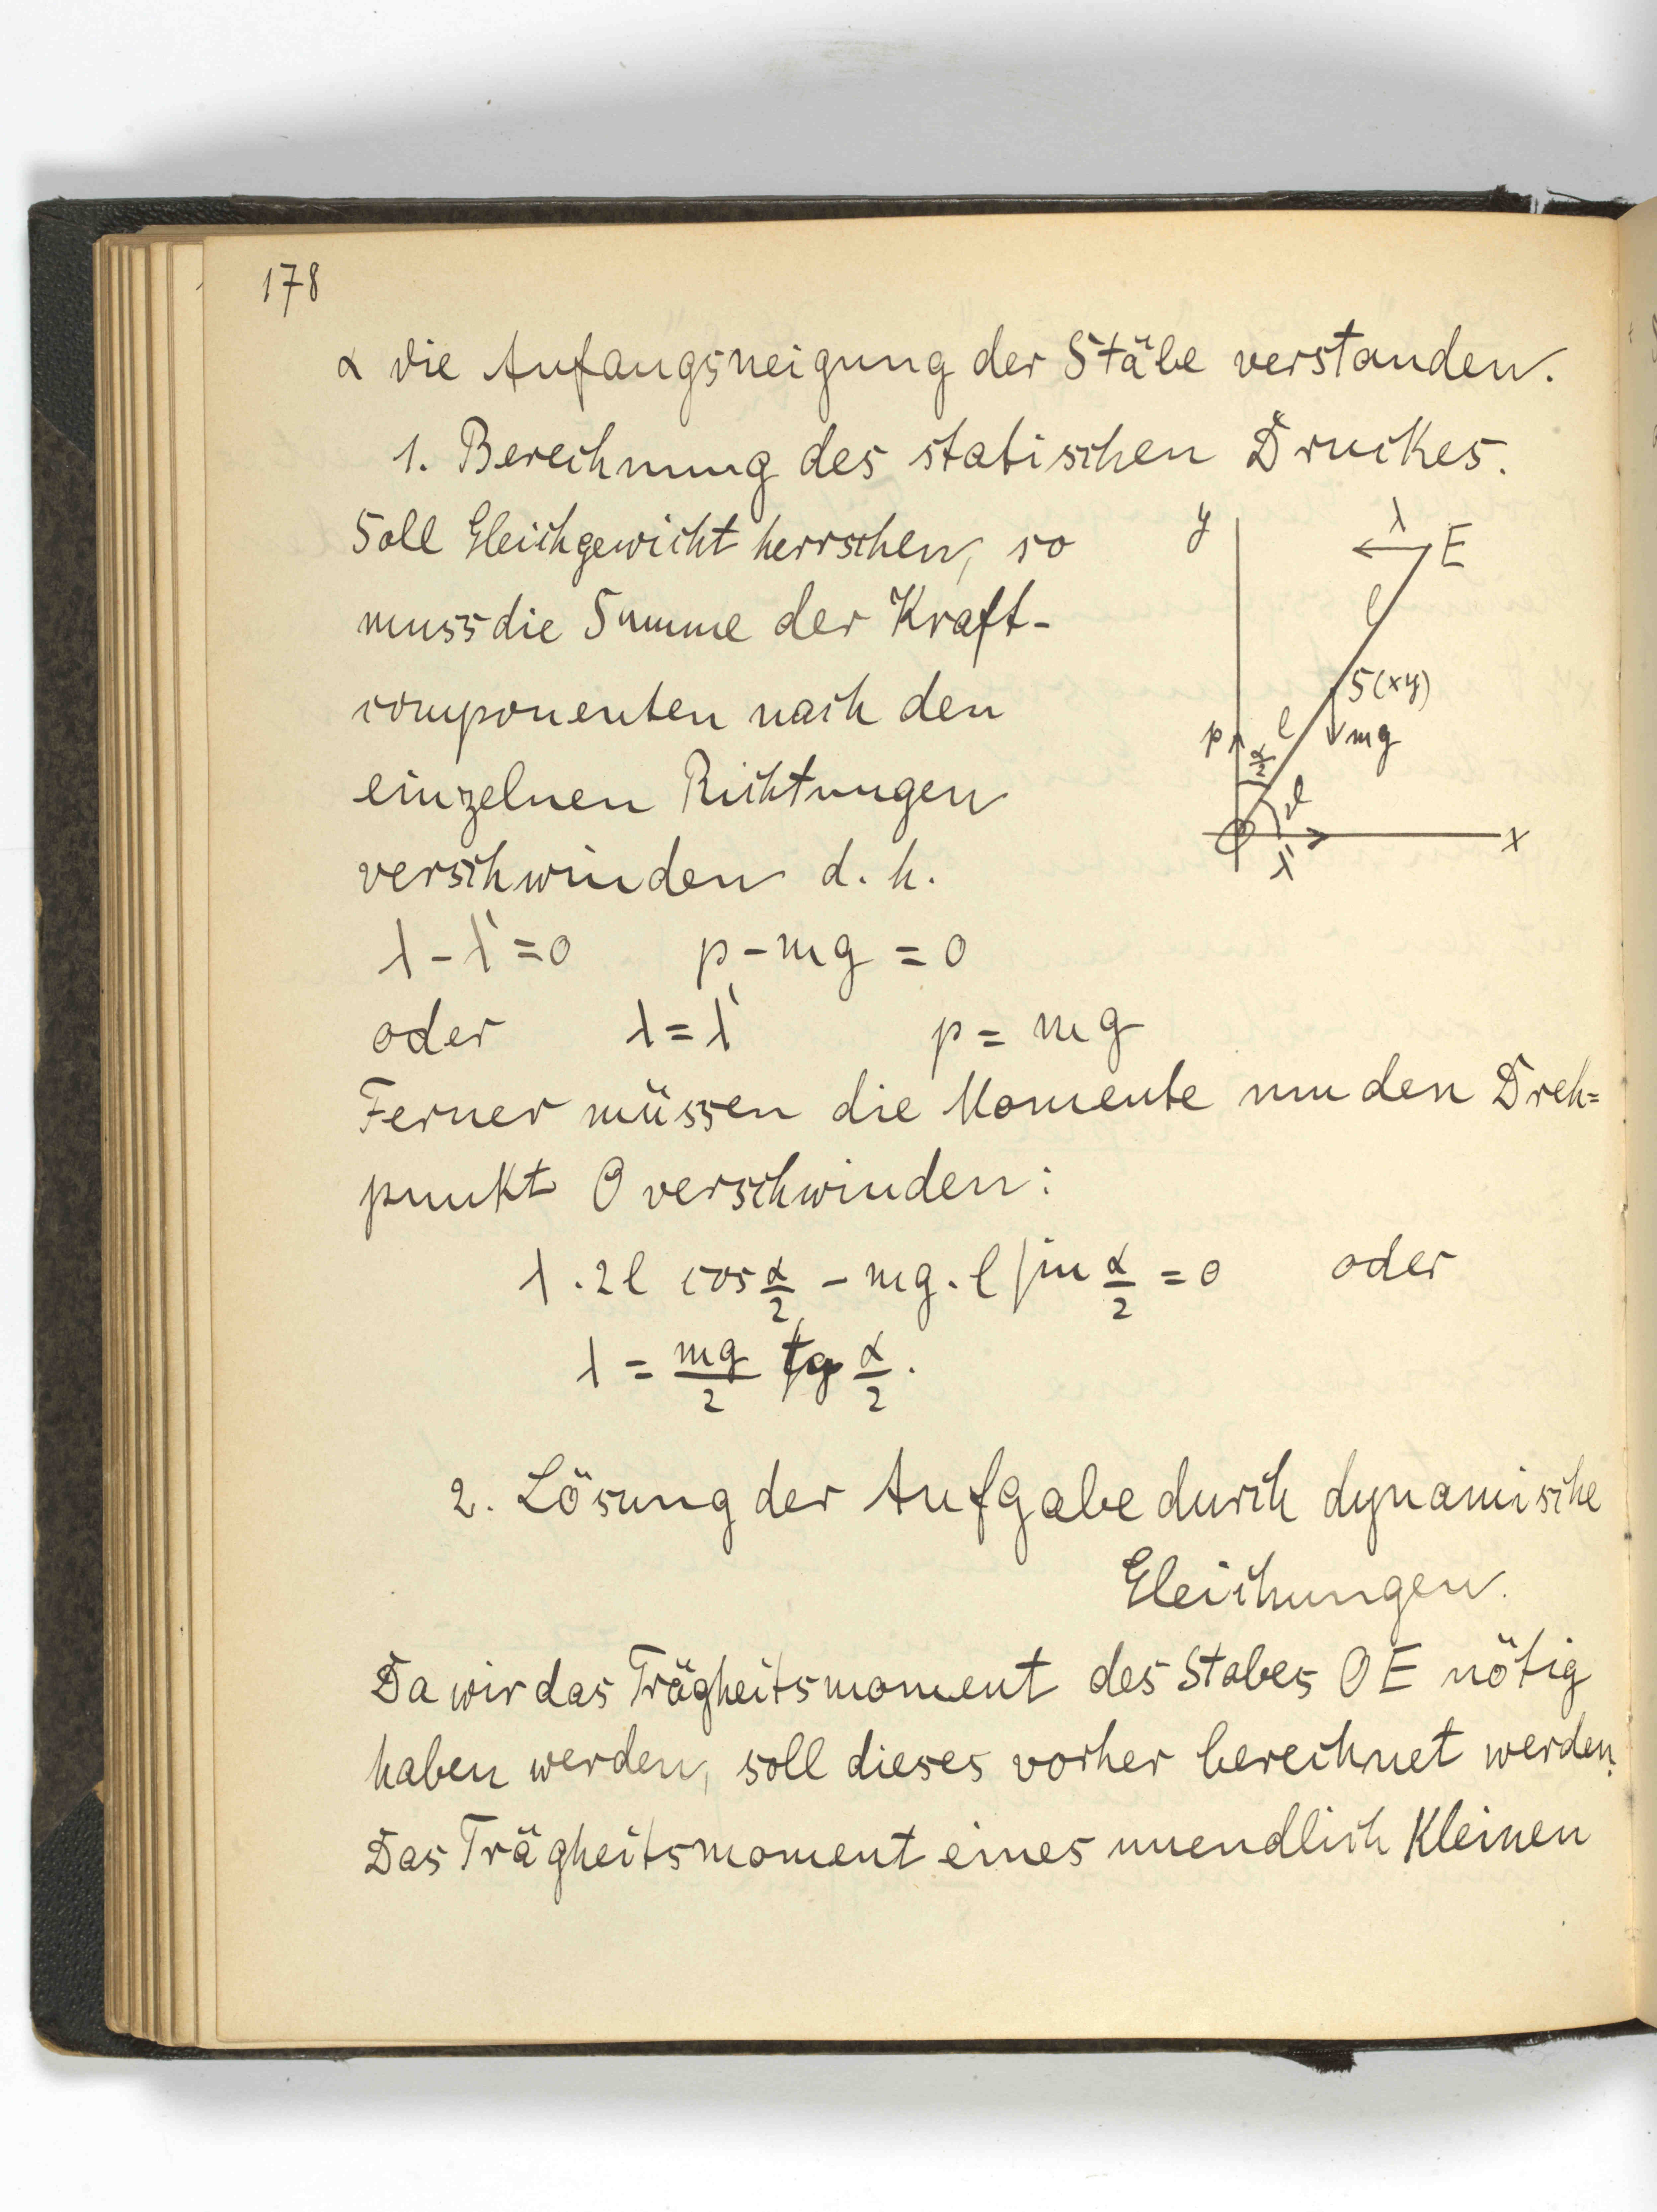 178
α die Anfangsneigung der Stäbe verstanden.
1. Berechnung des statischen Druckes.
Soll Gleichgewicht herrschen, so
muss die Summe der Kraft-
componenten nach den
einzelnen Richtungen
verschwinden d. h.
y
λ
E
l
S(xy)
p
l
mg
α/2
ϑ
O
x
λ'
λ - λ' = 0 p - mg = 0
oder λ = λ' p = mg
Ferner müssen die Momente um den Dreh=
punkt O verschwinden:
λ . 2l cos α/2 - mg . l sin α/2 = 0 oder
λ = mg/2 tg α/2 .
2. Lösung der Aufgabe durch dynamische
Gleichungen.
Da wir das Trägheitsmoment des Stabes OE nötig
haben werden, soll dieses vorher berechnet werden.
Das Trägheitsmoment eines unendlich kleinen